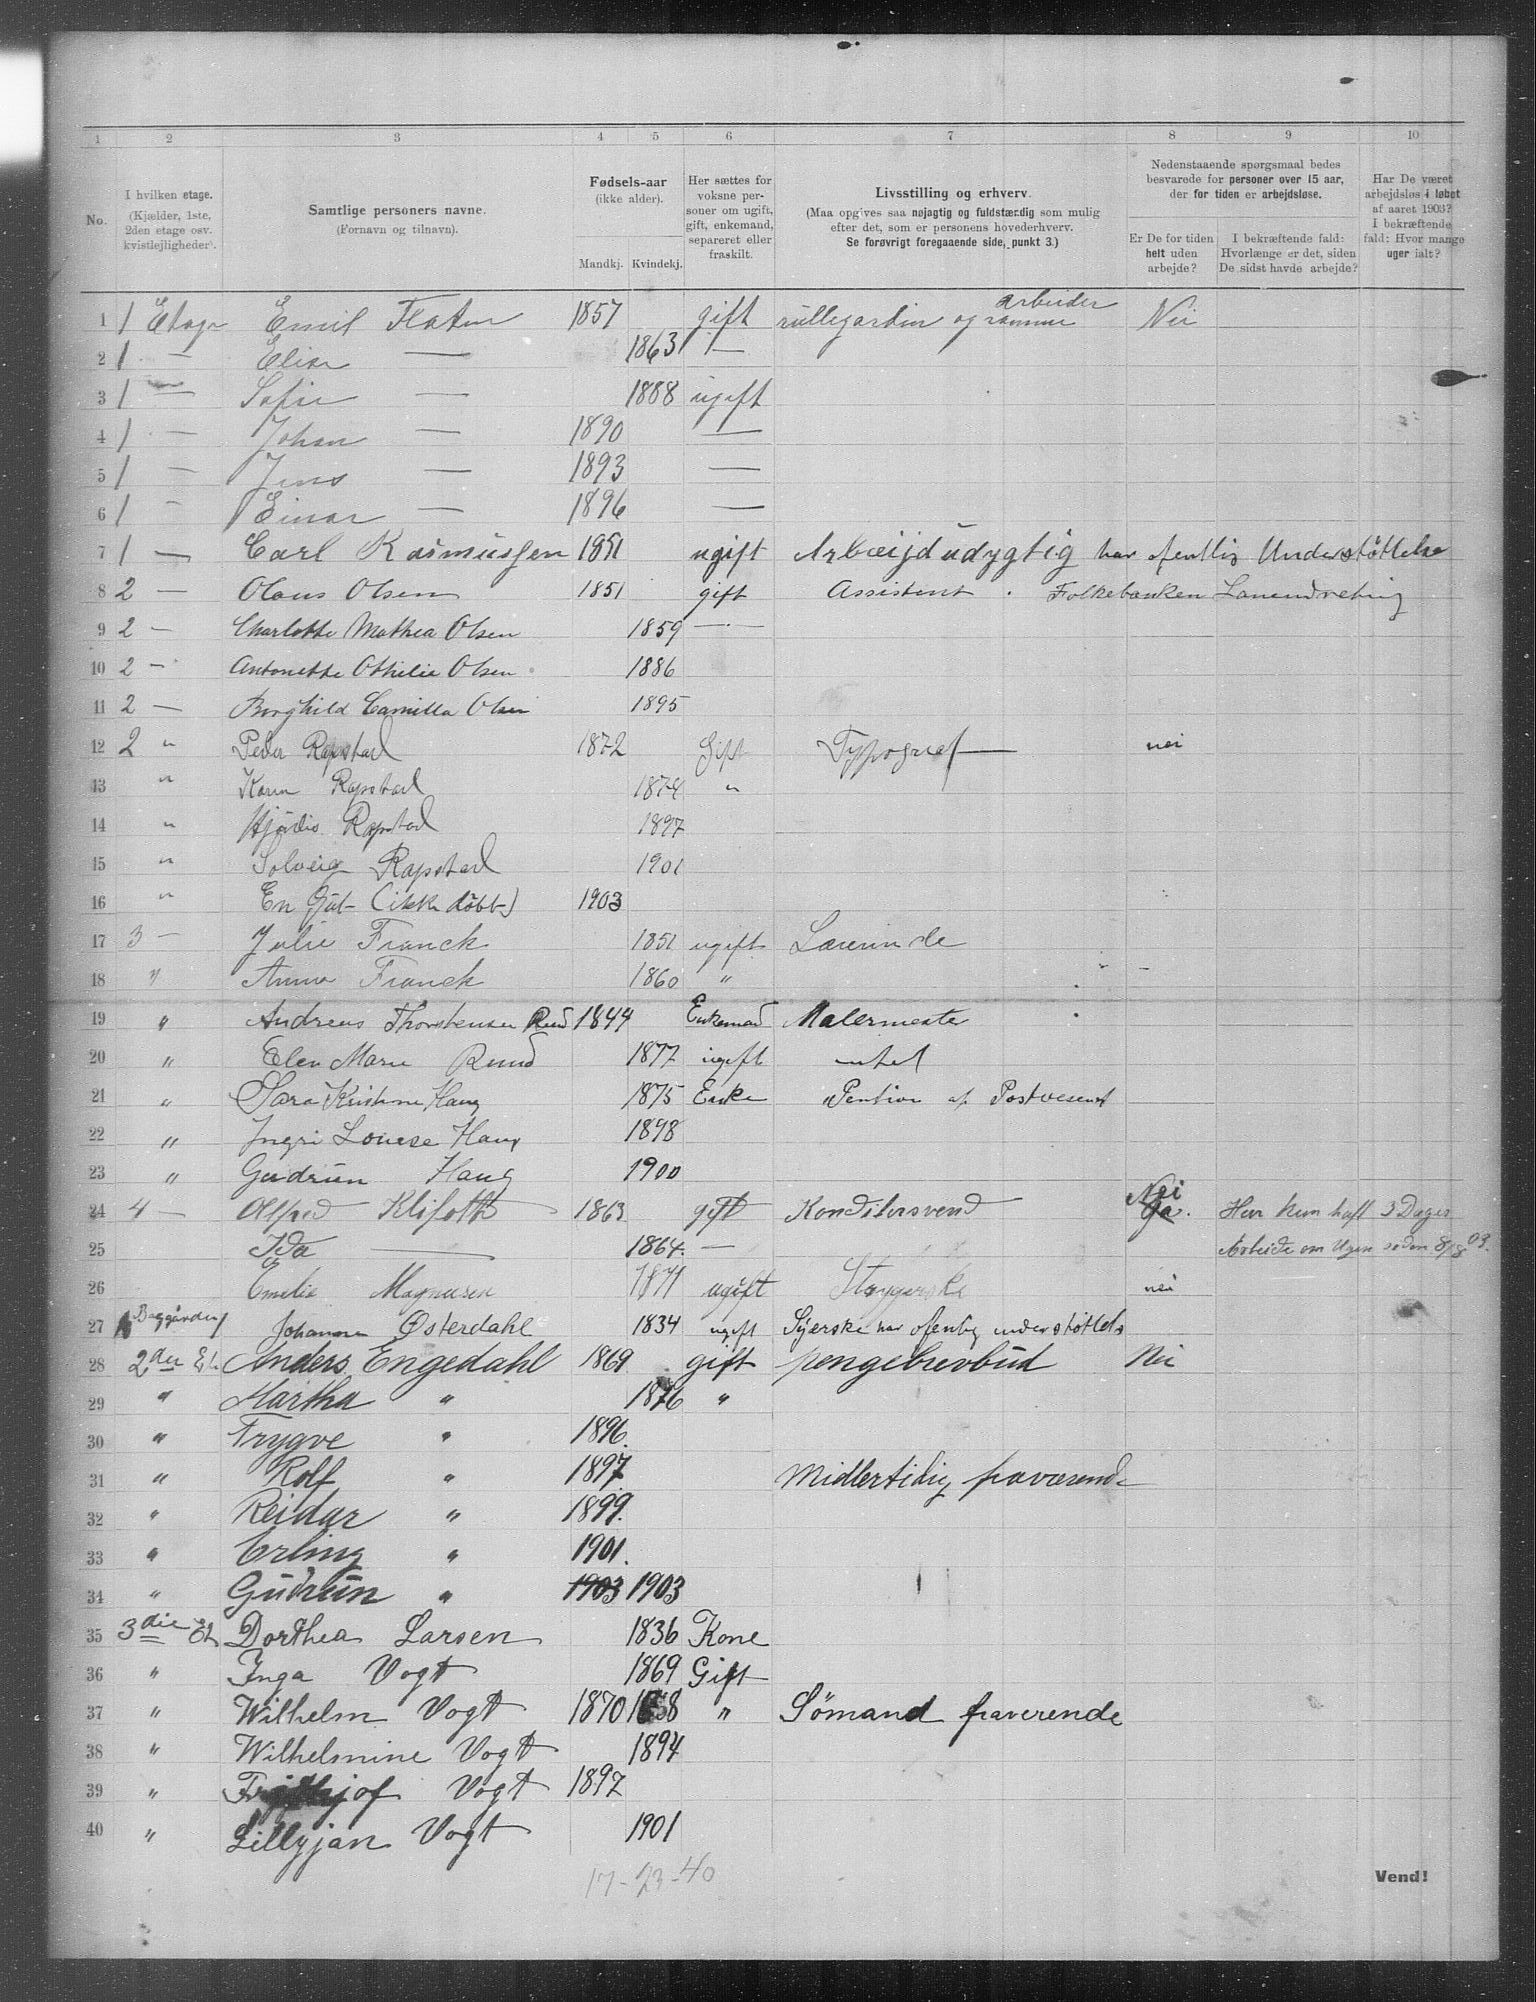 1 2 3 4 5 6 7 8 9 10
No.
I hvilken etage.
(Kjælder, 1ste,
2den etage osv.
kvistleiligheder).
Samtlige personers navne.
(Fornavn og tilnavn).
Fødsels-aar
(ikke alder).
Mandkj. Kvindekj.
Her sættes for
voksne per-
soner om ugift,
gift, enkemand,
separeret eller
fraskilt.
Livsstilling og erhverv.
(Maa opgives saa nøjagtig og fuldstændig som mulig
efter det, som er personens hovederhverv.
Se forøvrigt foregaaende side, punkt 3.)
Nedenstaaende spørgsmaal bedes
besvarede for personer over 15 aar,
der for tiden er arbejdsløse.
Er De for tiden
helt uden
arbejde?
I bekræftende fald:
Hvorlænge er det, siden
De sidst havde arbejde?
Har De været
arbejdsløs i løbet
af aaret 1903?
I bekræftende
fald: Hvor mange
uger ialt?
1 1 Etage Emil Flaten 1857 gift rullegardin og ramme arbeider Nei
2 1 — Elise — 1863 —
3 1 — Sofie — 1888 ugift
4 1 — Johan — 1890 —
5 1 — Jens — 1893 —
6 1 — Einar — 1896 —
7 1 — Carl Rasmussen 1851 ugift Arbeijdudygtig har ofentlig Understøttelse
8 2 — Olaus Olsen 1851 gift Assistent . Folkebanken
9 2 — Charlotte Mathea Olsen 1859 —
10 2 — Antonette Othilie Olsen 1886
11 2 — Borghild Camilla Olsen 1895
12 2 " Peder Rapstad 1872 Gift Typograf — nei
13 " Karen Rapstad 1874 "
14 " Hjördis Rapstad 1897
15 " Solveig Rapstad 1901
16 " En Gut (ikke döbt) 1903
17 3 — Julie Franck 1851 ugift Lærerinde
18 " Anna Franck 1860 "
19 " Andreas Thorstensen Ruud 1844 Enkemand Malermester
20 " Elen Marie Ruud 1877 ugift
21 " Sara Kristine Haug 1875 Enke Pention af Postvesenet
22 " Ingri Louise Haug 1898
23 " Gudrun Haug 1900
24 4 — Alfred Klifoth 1863 gift Konditersvend Nei Ja. Har kun haft 3 Dages
25 Ida — 1864 — Arbeide om Ugen siden 8/8 03.
26 Emilie Magnusen 1871 ugift nei
27 Baggården Johanne Østerdahl 1834 ugift Syerske har ofentlig understøttelse
28 2den Et. Anders Engedahl 1869 gift pengebrevbud Nei
29 " Martha " 1876 "
30 " Trygve " 1896.
31 " Rolf " 1897 Midlertidig fraværende
32 " Reidar " 1899.
33 " Erling " 1901.
34 " Gudrun " 1903 1903
35 3die Et. Dorthea Larsen 1836 Kone
36 " Inga Vogt 1869 Gift
37 " Wilhelm Vogt 1870 " Sömand fraverende
38 " Wilhelmine Vogt 1894
39 " Fridthjof Vogt 1897
40 " Lillyjan Vogt 1901
17-23-40
Vend!